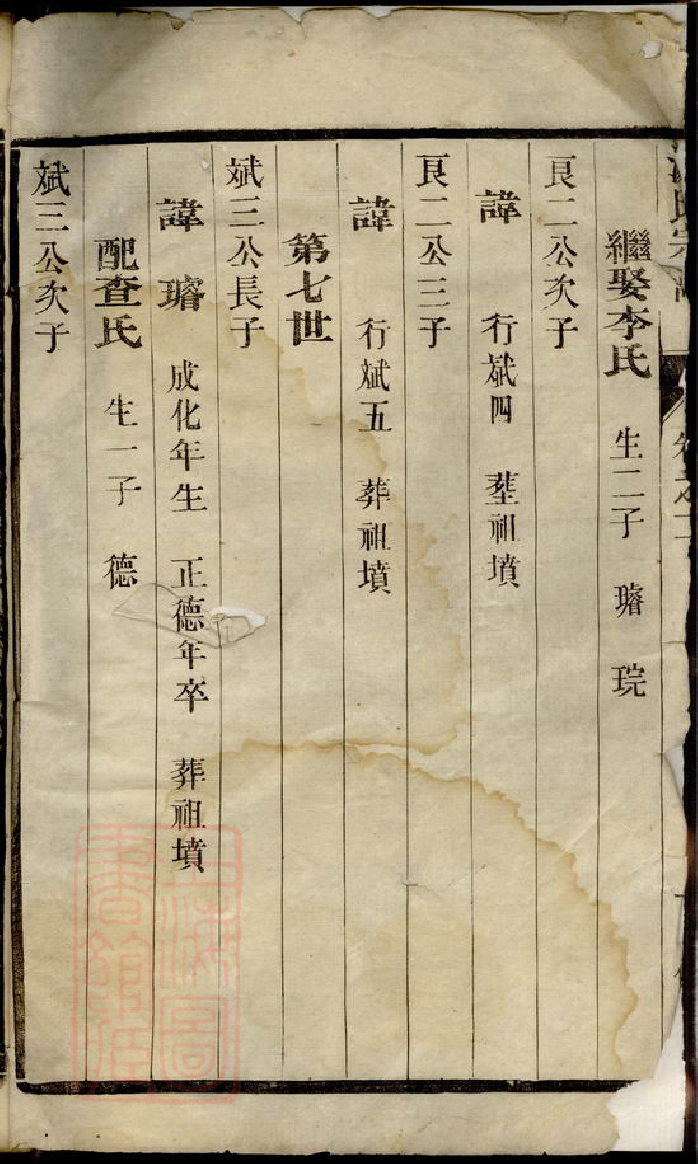 繼娶李氏 生二子 璿 琓
艮二公次子
諱 行斌四 塟祖墳
艮二公三子
諱 行斌五 葬祖墳
第七世
斌三公長子
諱璿 成化年生 正德年卒 葬祖墳
配查氏 生一子 德
斌三公次子
上海圖
書館藏